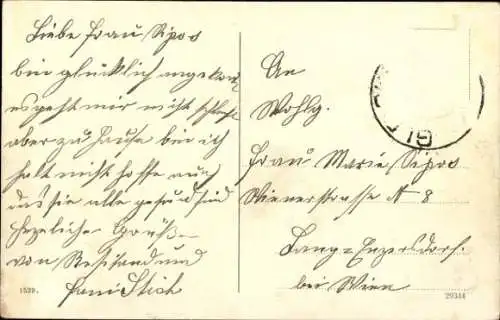 Liebe Frau Sipos
bin glücklich angekom
es geht mir nicht schlecht
aber zu Hause bin ich
halt nicht hoffe auch
das Sie alle gesund sind
Herzliche Grüße
von und
Fami Stich
1539.
An
Wohlg.
Frau Marie Sipos
Wienerstrasse N 8
Lang=Enzersdorf.
bei Wien
29344